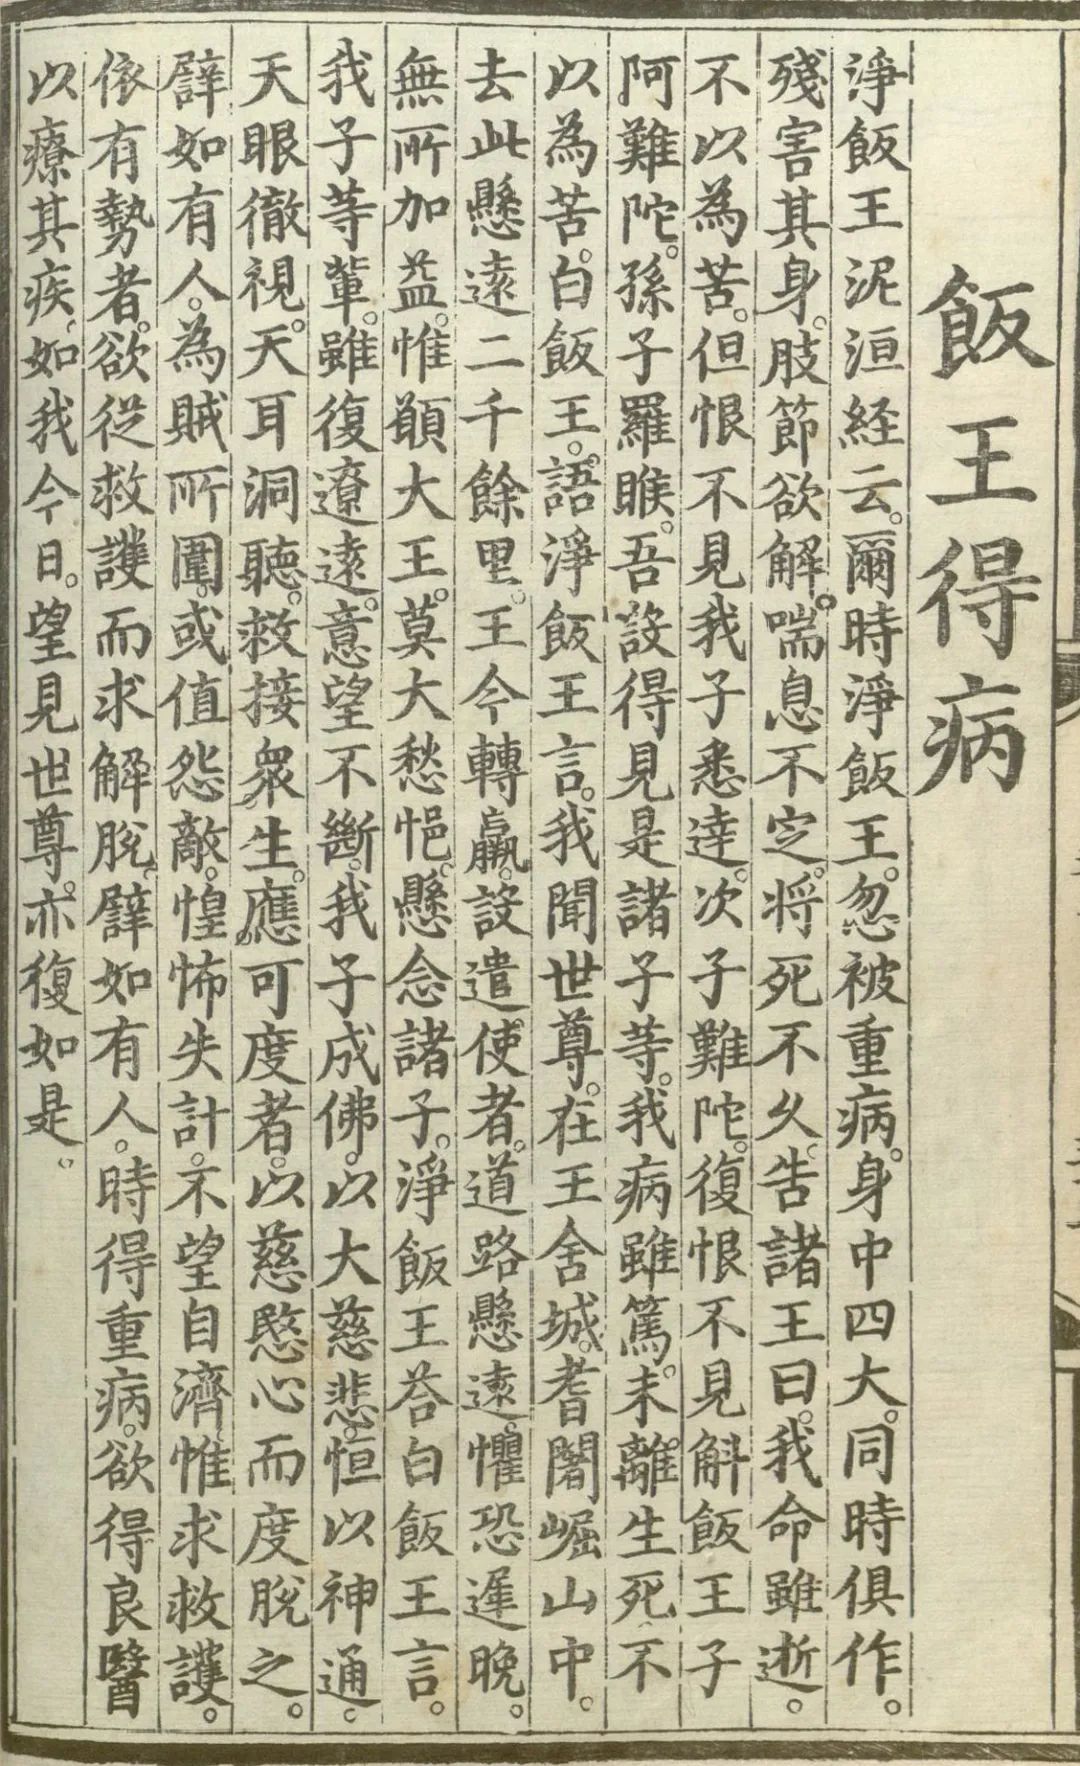 飯王得病
淨飯王泥洹経云。爾時淨飯王。忽被重病。身中四大。同時俱作。
殘害其身。肢節欲解。喘息不定。将死不久。告諸王曰。我命雖逝。
不以為苦。但恨不見我子悉達。次子難陀。復恨不見斛飯王子
阿難陀。孫子羅睺。吾設得見是諸子等。我病雖篤。未離生死。不
以為苦。白飯王。語淨飯王言。我聞世尊。在王舍城。耆闍崛山中。
去此懸遠二千餘里。王今轉羸。設遣使者。道路懸遠。懼恐遲晚。
無所加益。惟願大王。莫大愁悒。懸念諸子。淨飯王荅白飯王言。
我子等輩。雖復遼遠。意望不斷。我子成佛。以大慈悲。恒以神通。
天眼徹視。天耳洞聽。救接衆生。應可度者。以慈愍心而度脫之。
譬如有人。為賊所圍。或值怨敵。惶怖失計。不望自濟。惟求救護。
依有勢者。欲從救護而求解脫。譬如有人。時得重病。欲得良醫
以療其疾。如我今日。望見世尊。亦復如是。